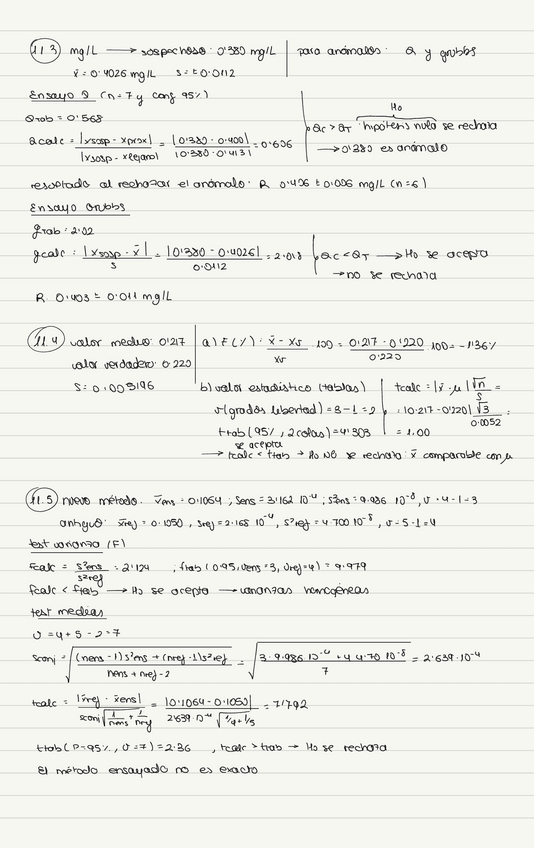 11.3 mg/L → sospechoso: 0'380 mg/L para anómalos: Q y grubbs
x̄ = 0'4026 mg/L s = ± 0.0112
Ensayo Q (n=7 y conf 95%)
Qtab = 0'568
Ho
Qcalc = |xsosp - xprox| / |xsosp - xlejano| = |0'380 - 0'400| / |0'380 - 0'413| = 0'606
Qc > QT hipótesis nula se rechaza
→ 0'380 es anómalo
resultado al rechazar el anómalo: R 0'406 ± 0'006 mg/L (n=6)
Ensayo Grubbs
gtab = 2.02
gcalc = |xsosp - x̄| / s = |0'380 - 0'4026| / 0.0112 = 2.018
Qc < QT → Ho se acepta
→ no se rechaza
R. 0'403 ± 0'011 mg/L
11.4 valor medio: 0'217 a) E(%) = x̄ - xv / xv · 100 = 0'217 - 0'220 / 0.220 · 100 = -1'36%
valor verdadero: 0.220
s = 0.005196 b) valor estadístico (tablas)
v (grados libertad) = 3 - 1 = 2
ttab (95%, 2 colas) = 4'303
tcalc = |x̄ - μ| √n / s =
= |0.217 - 0'220| √3 / 0.0052 =
= 1.00
se acepta
→ tcalc < ttab → Ho NO se rechaza: x̄ comparable con μ
11.5 nuevo método: x̄ens = 0'1064 ; sens = 3'162 10⁻⁴ ; s²ens = 9.986 10⁻⁸, v = 4-1 = 3
antiguo: x̄ref = 0.1050, sref = 2.168 10⁻⁴, s²ref = 4'700 10⁻⁸, v = 5-1 = 4
test varianza (F)
Fcalc = s²ens / s²ref = 2'124 , ftab (0.95, vens = 3, vref = 4) = 9.979
Fcalc < ftab → Ho se acepta → varianzas homogéneas
test medias
v = 4 + 5 - 2 = 7
sconj = √((nens - 1) s²ens + (nref - 1) s²ref / nens + nref - 2) = √(3 · 9.986 10⁻⁸ + 4 4.70 10⁻⁸ / 7) = 2'639 · 10⁻⁴
tcalc = |x̄ref - x̄ens| / sconj √(1/nens + 1/nref) = |0'1064 - 0.1050| / 2'639 · 10⁻⁴ √(1/4 + 1/5) = 7'1792
ttab (P = 95%, v = 7) = 2.36 , tcalc > ttab → Ho se rechaza
El método ensayado no es exacto